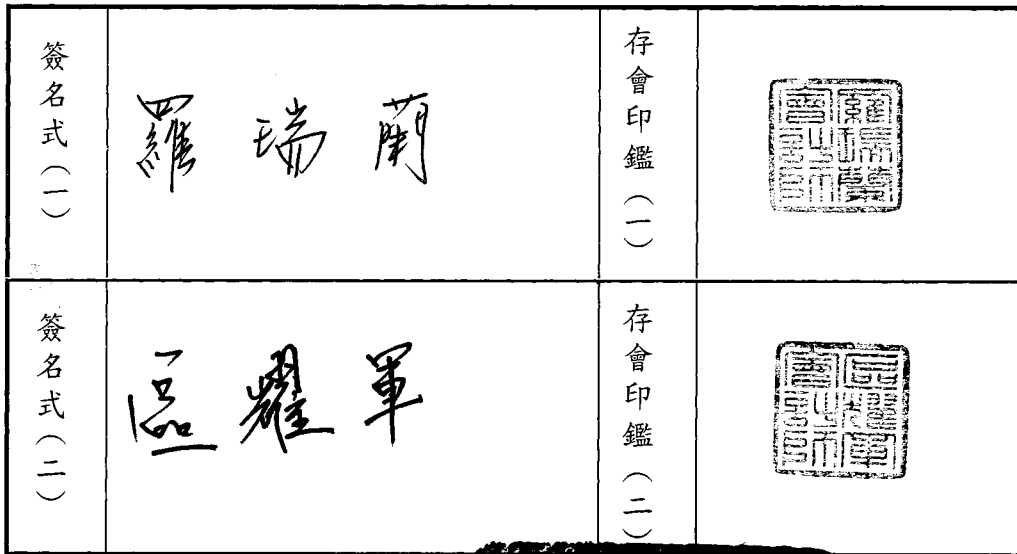 簽名式（一）
羅瑞蘭
存會印鑑（一）
羅瑞蘭會計師
簽名式（二）
區耀軍
存會印鑑（二）
區耀軍會計師